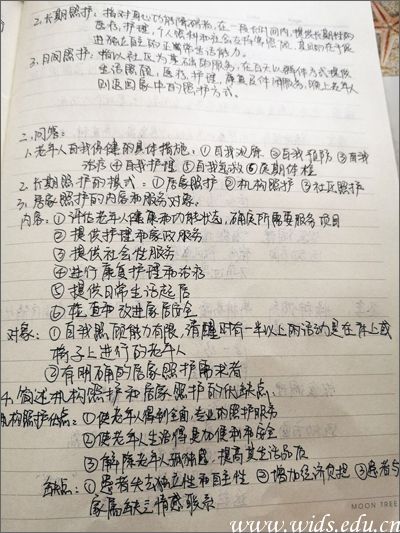 2.长期照护：指对身心功能障碍者，在一段长时间内，提供长期性的
医疗、护理、个人与社会支持的照顾，其目的在于促
进独立自主的正常生活能力。
3.日间照护：指以社区为基础的服务，在白天以
生活照顾、医疗、护理、康复及休闲服务，晚上老年人
则返回家中的照护方式。
二、问答：
1.老年人自我保健的具体措施：①自我观察 ②自我预防 ③自我
治疗 ④自我护理 ⑤自我急救 ⑥定期体检
2.长期照护的模式：①居家照护 ②机构照护 ③社区照护
3.居家照护的内容和服务对象：
内容：①评估老年人健康和功能状态，确定所需要服务项目
②提供护理和家政服务
③提供社会性服务
④进行康复护理和治疗
⑤提供日常生活起居
⑥检查和改进家居安全
对象：①自我照顾能力有限，清醒时有一半以上的活动是在床上或
椅子上进行的老年人
②有明确的居家照护需求者
4.简述机构照护和居家照护的优缺点：
机构照护优点：①使老年人得到全面、专业的照护服务
②使老年人生活得更加便利和安全
③解除老年人孤独感，提高其生活品质
缺点：①患者失去独立性和自主性 ②增加经济负担 ③患者与
家属缺乏情感联系
MOON TREE
www.wids.edu.cn